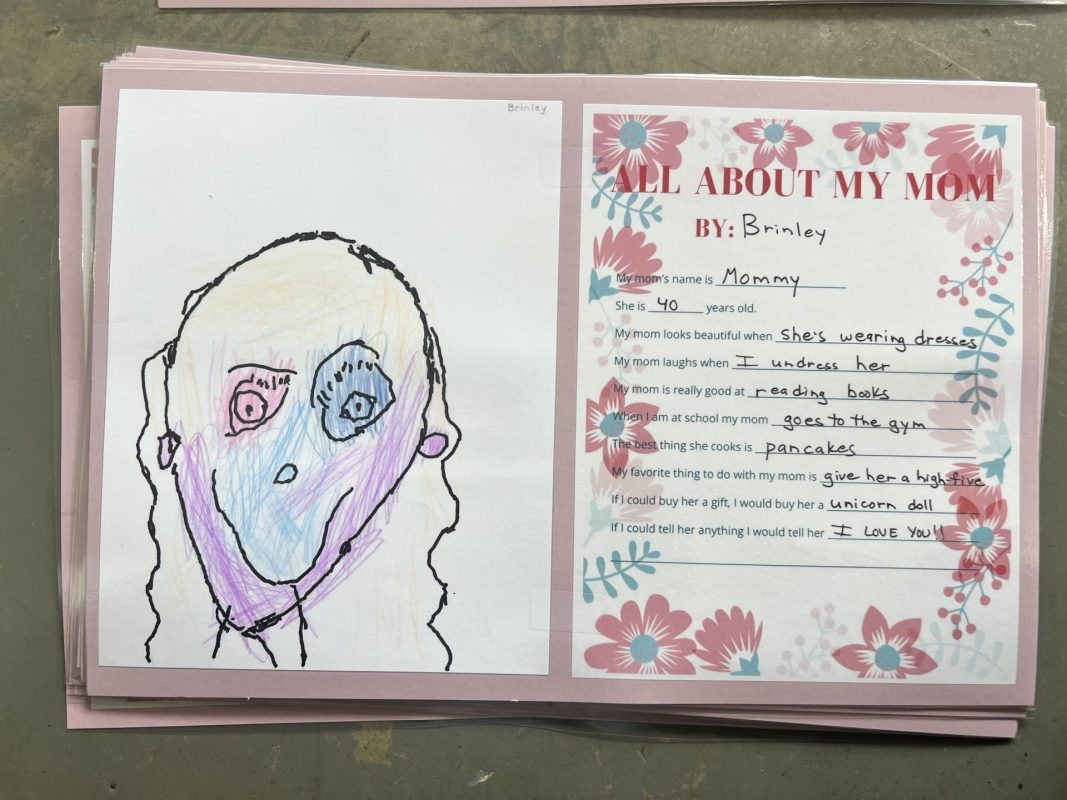 Brinley
ALL ABOUT MY MOM
BY: Brinley
My mom's name is Mommy
She is 40 years old.
My mom looks beautiful when she's wearing dresses
My mom laughs when I undress her
My mom is really good at reading books
When I am at school my mom goes to the gym
The best thing she cooks is pancakes
My favorite thing to do with my mom is give her a high-five
If I could buy her a gift, I would buy her a unicorn doll
If I could tell her anything I would tell her I LOVE YOU!!